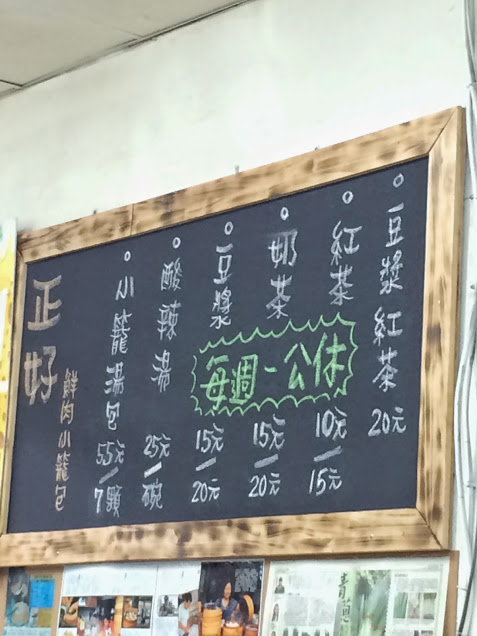 豆漿紅茶 20元
紅茶 10元/15元
奶茶 15元/20元
豆漿 15元/20元
酸辣湯 25元/碗
小籠湯包 55元/7顆
每週一公休
正好
鮮肉小籠包